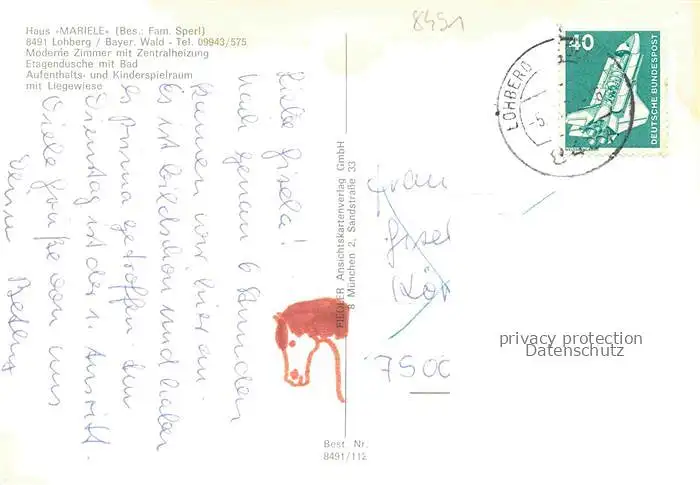 Haus »MARIELE« (Bes.: Fam. Sperl)
8491 Lohberg / Bayer. Wald - Tel. 09943/575
Moderne Zimmer mit Zentralheizung
Etagendusche mit Bad
Aufenthalts- und Kinderspielraum
mit Liegewiese
8491
Liebe Gisela!
Nach genau 6 Stunden
kamen wir hier an
Es ist bildschön und haben
es prima getroffen. Am
Dienstag ist der 1. Ausritt.
Viele Grüße von uns
Deine
FIEDLER Ansichtskartenverlag GmbH
8 München 2, Sandstraße 33
Best. Nr.
8491/112
40
DEUTSCHE BUNDESPOST
LOHBERG
Frau
Gisel
7500
privacy protection
Datenschutz